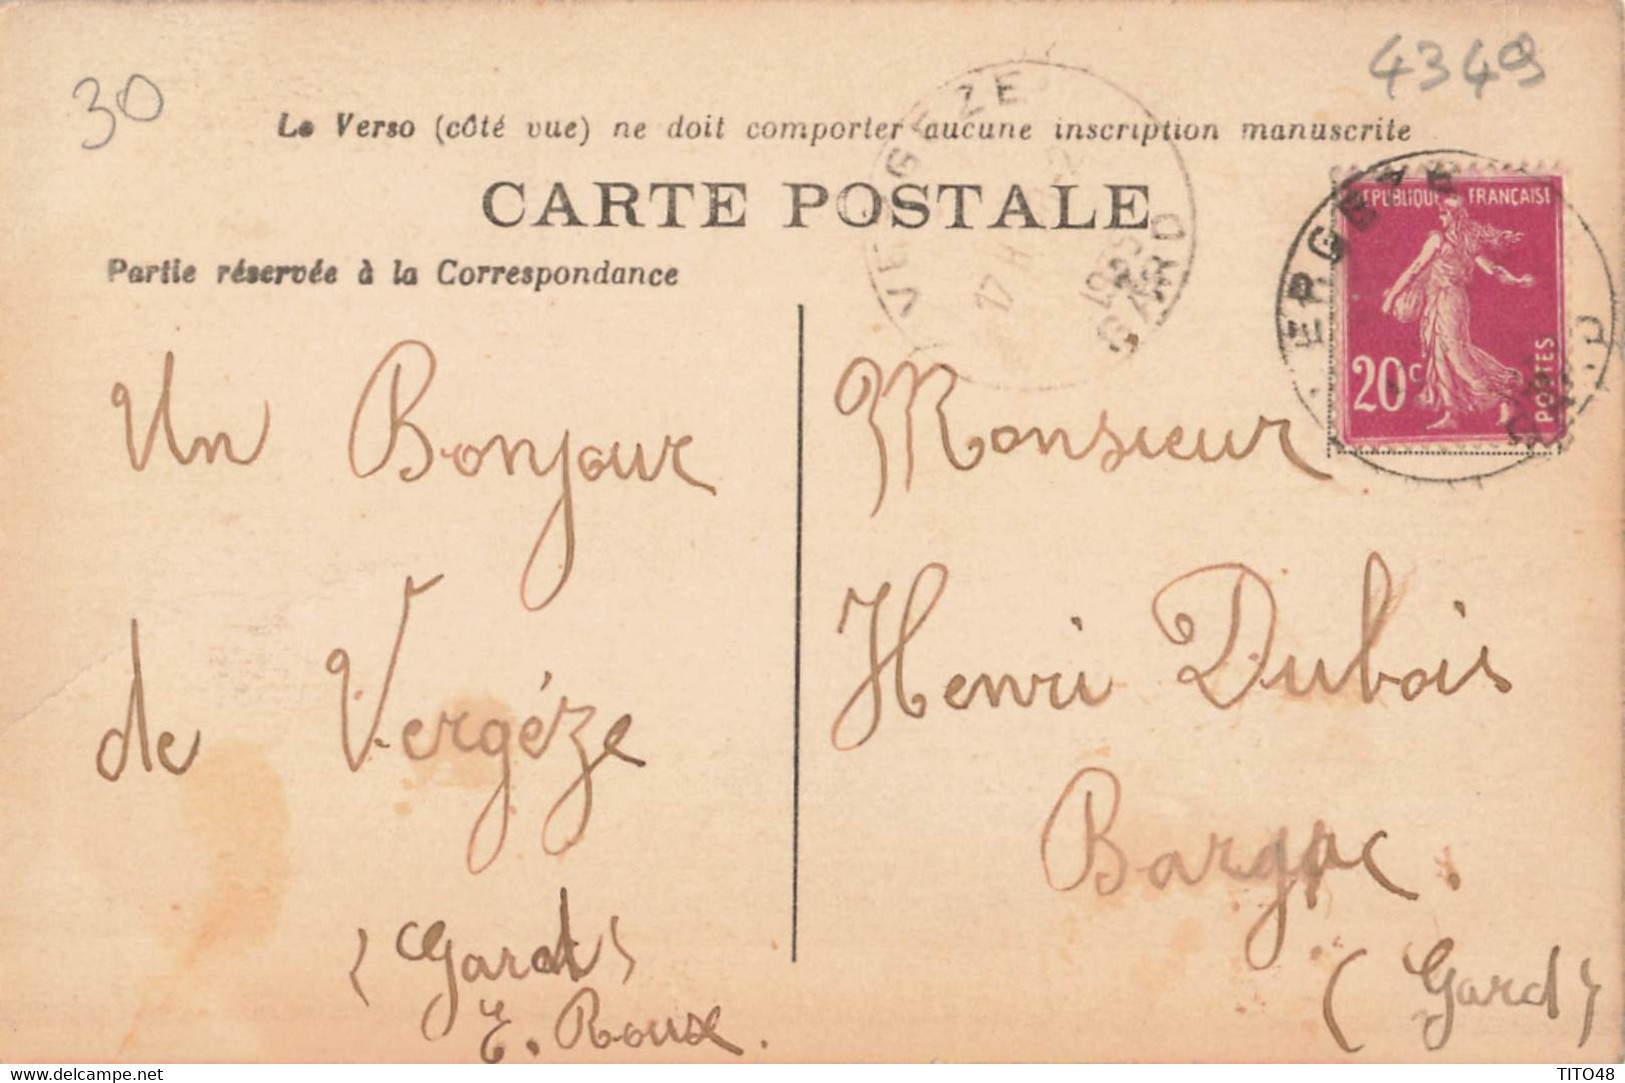 30
4349
Le Verso (côté vue) ne doit comporter aucune inscription manuscrite
CARTE POSTALE
Partie réservée à la Correspondance
VERGEZE
17 H
1935
GARD
ERGEZE
REPUBLIQUE FRANÇAISE
20c
POSTES
Un Bonjour
de Vergéze
(Gard)
E. Roux.
Monsieur
Henri Dubois
Bargac.
(Gard)
delcampe.net
TITO48